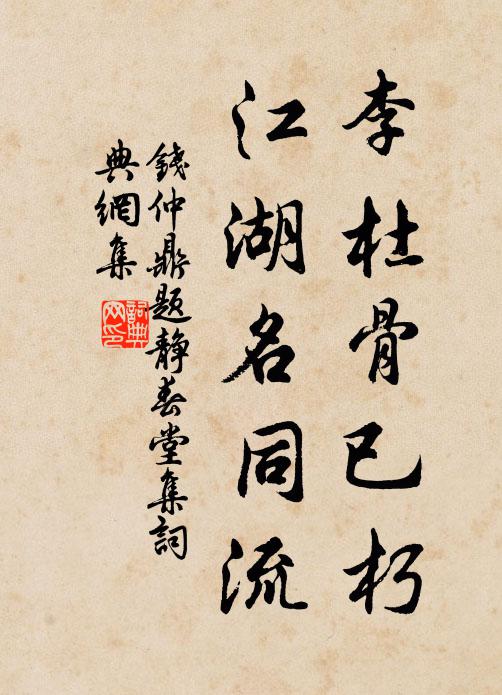 李杜骨已朽
江湖名同流
錢仲鼎题靜春堂集詞
典網集
詞典
网印